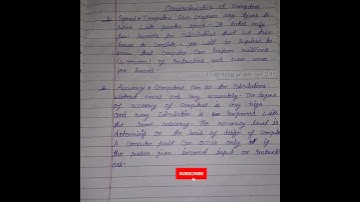 Characteristics of Computers
1. Speed → Computers Can Program any types to
work with greater speed. It takes only
few
for Calculations that we take
hours to complete. You will be required to
know that Computer Can Program millions
(1,000,000) of Instructions and even more
per Second.
2. Accuracy → Computers Can do the Calculations
without errors and very accurately. The degree
of accuracy of Computers is very high
and every Calculation is Performed with
the Same accuracy. The accuracy level is
determine on the basis of design of Computer
A Computer fault Can occur only if
the
gives
input or Instruction
SUBSCRIBE